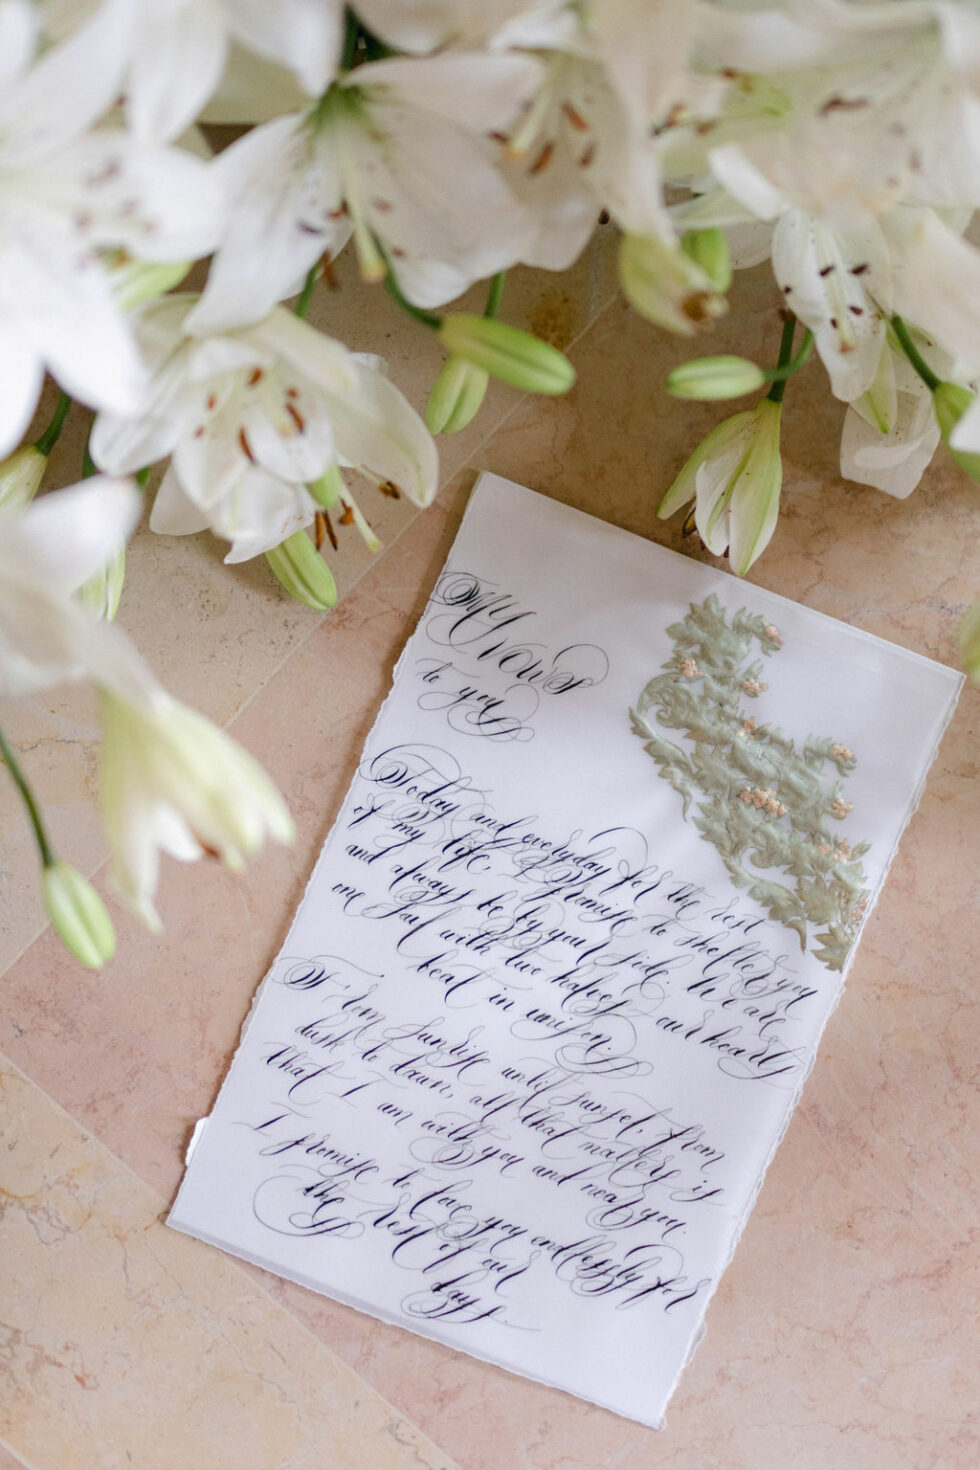 My
vows
to you
Today and everyday for the rest
of my life, I promise to shelter you
and always be by your side. We are
one soul with two halves, our hearts
beat in unison.
From sunrise until sunset, from
dusk to dawn, all that matters is
that I am with you and near you.
I promise to love you endlessly for
the rest of our
days.